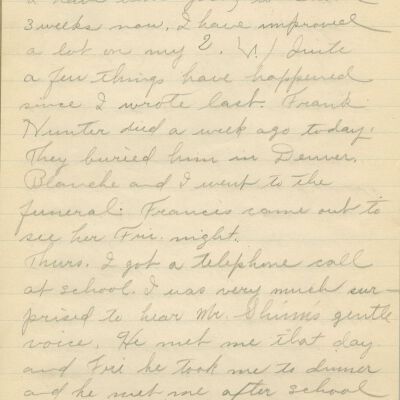 3 weeks now. I have improved
a lot on my 2. Quite
a few things have happened
since I wrote last. Frank
Nunter died a week ago today.
They buried him in Denver.
Blanche and I went to the
funeral. Francis came out to
see her Fri. night.
Thurs. I got a telephone call
at school. I was very much sur-
prised to hear Mr. Shinn's gentle
voice. He met me that day
and Fri he took me to dinner
and he met me after school